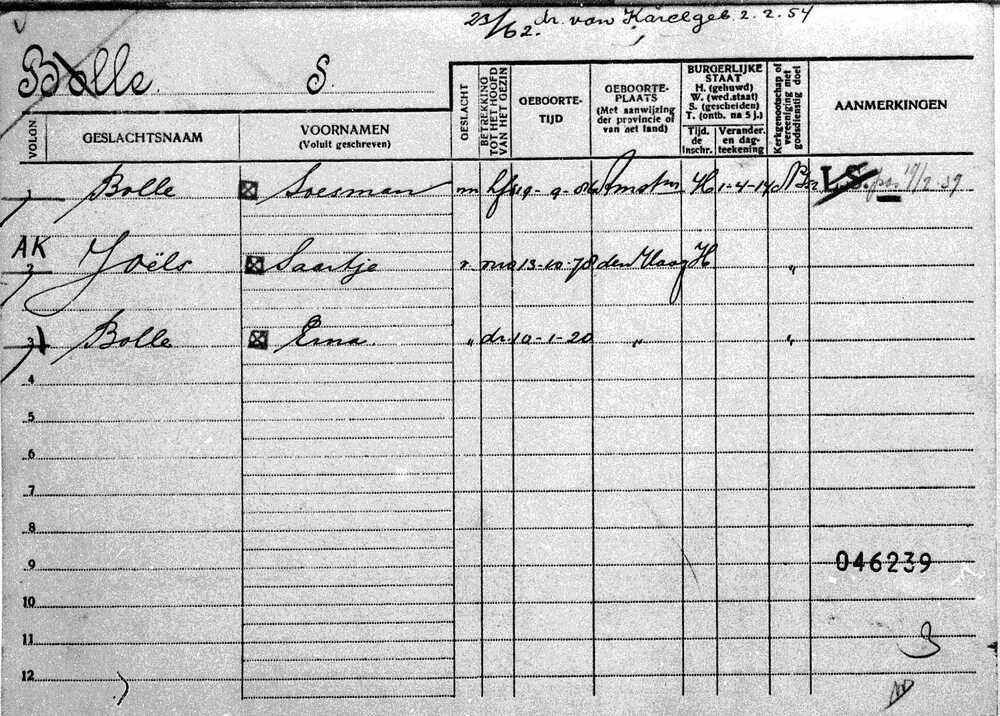 V
23/62. dr. van Karel geb 2.2.54
Bolle. S.
VOLGN. GESLACHTSNAAM VOORNAMEN (Voluit geschreven) GESLACHT BETREKKING TOT HET HOOFD VAN HET GEZIN GEBOORTE-TIJD GEBOORTE-PLAATS (Met aanwijzing der provincie of van het land) BURGERLIJKE STAAT H. (gehuwd) W. (wed.staat) S. (gescheiden) T. (ontb. na 5 j.) Tijd. de inschr. Verander. en dag-teekening Kerkgenootschap of vereeniging met godsdienstig doel AANMERKINGEN
1 Bolle Soesman m hfd 19-9-86 Amstm H 1-4-14 17/2-39
AK
2 Joëls Saartje v. 13-10-78 den Haag H "
3 Bolle Erna. " dr. 10-1-20 " "
4
5
6
7
8
9 046239
10
11
12